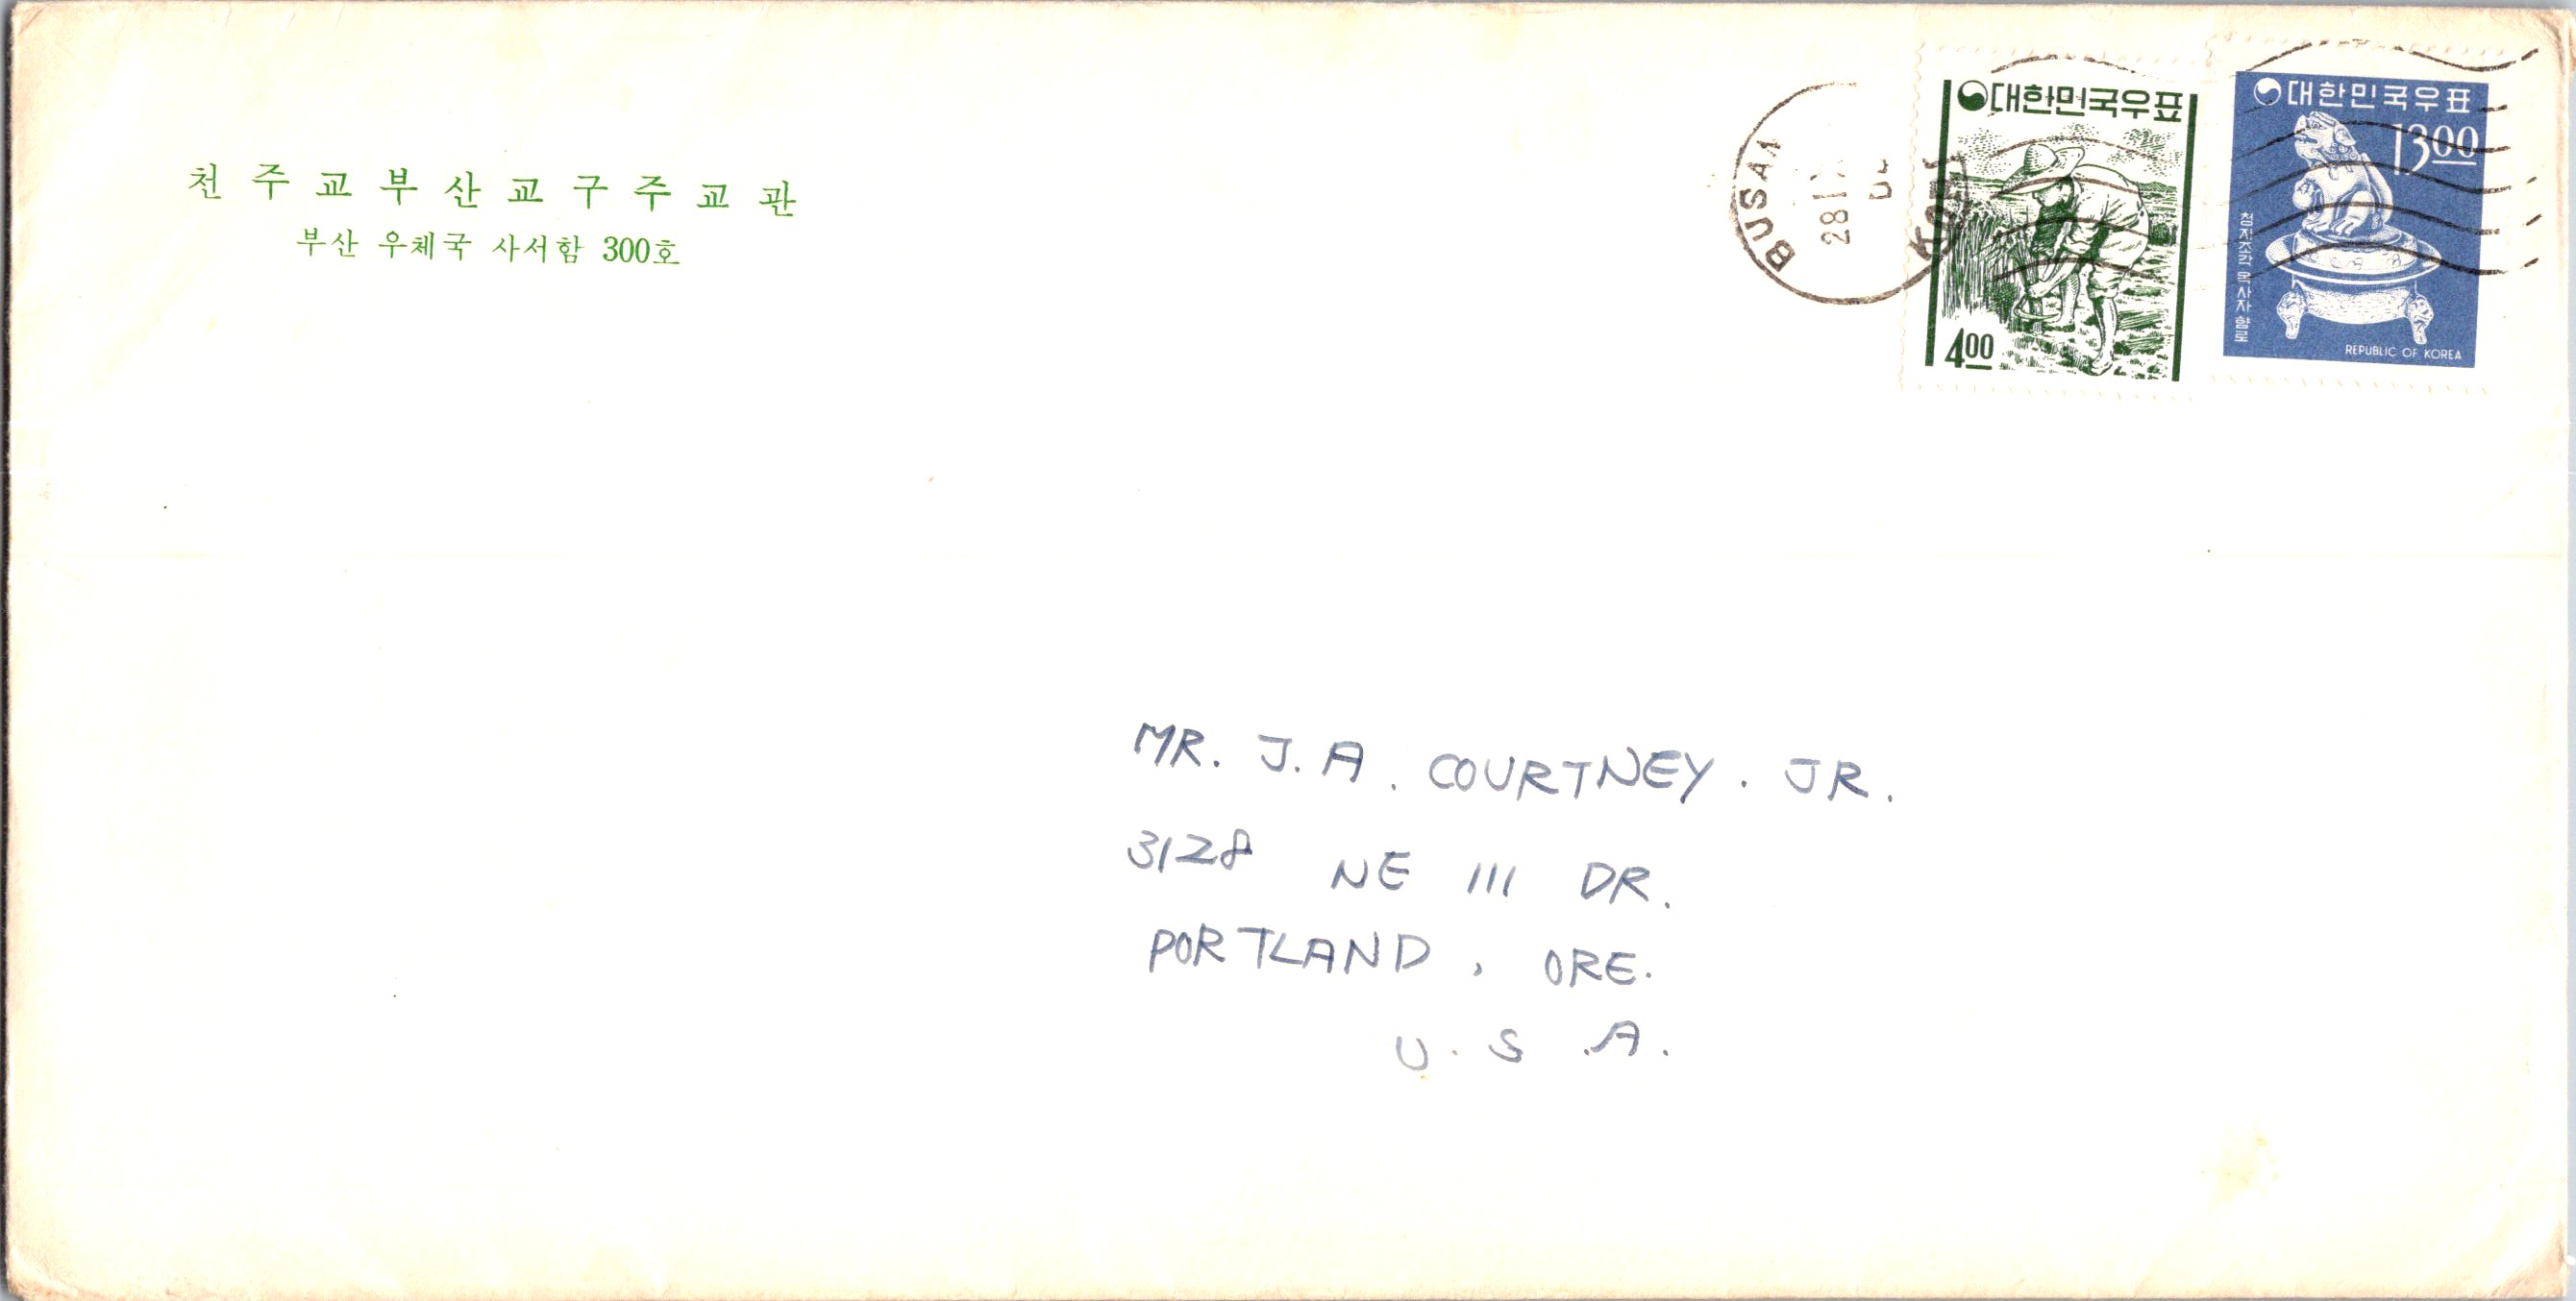 천주교부산교구주교관
부산 우체국 사서함 300호
BUSAN
28 1
KOREA
대한민국우표
400
대한민국우표
1300
청자조각 복사자 향로
REPUBLIC OF KOREA
MR. J. A. COURTNEY. JR.
3128 NE 111 DR.
PORTLAND, ORE.
U. S. A.